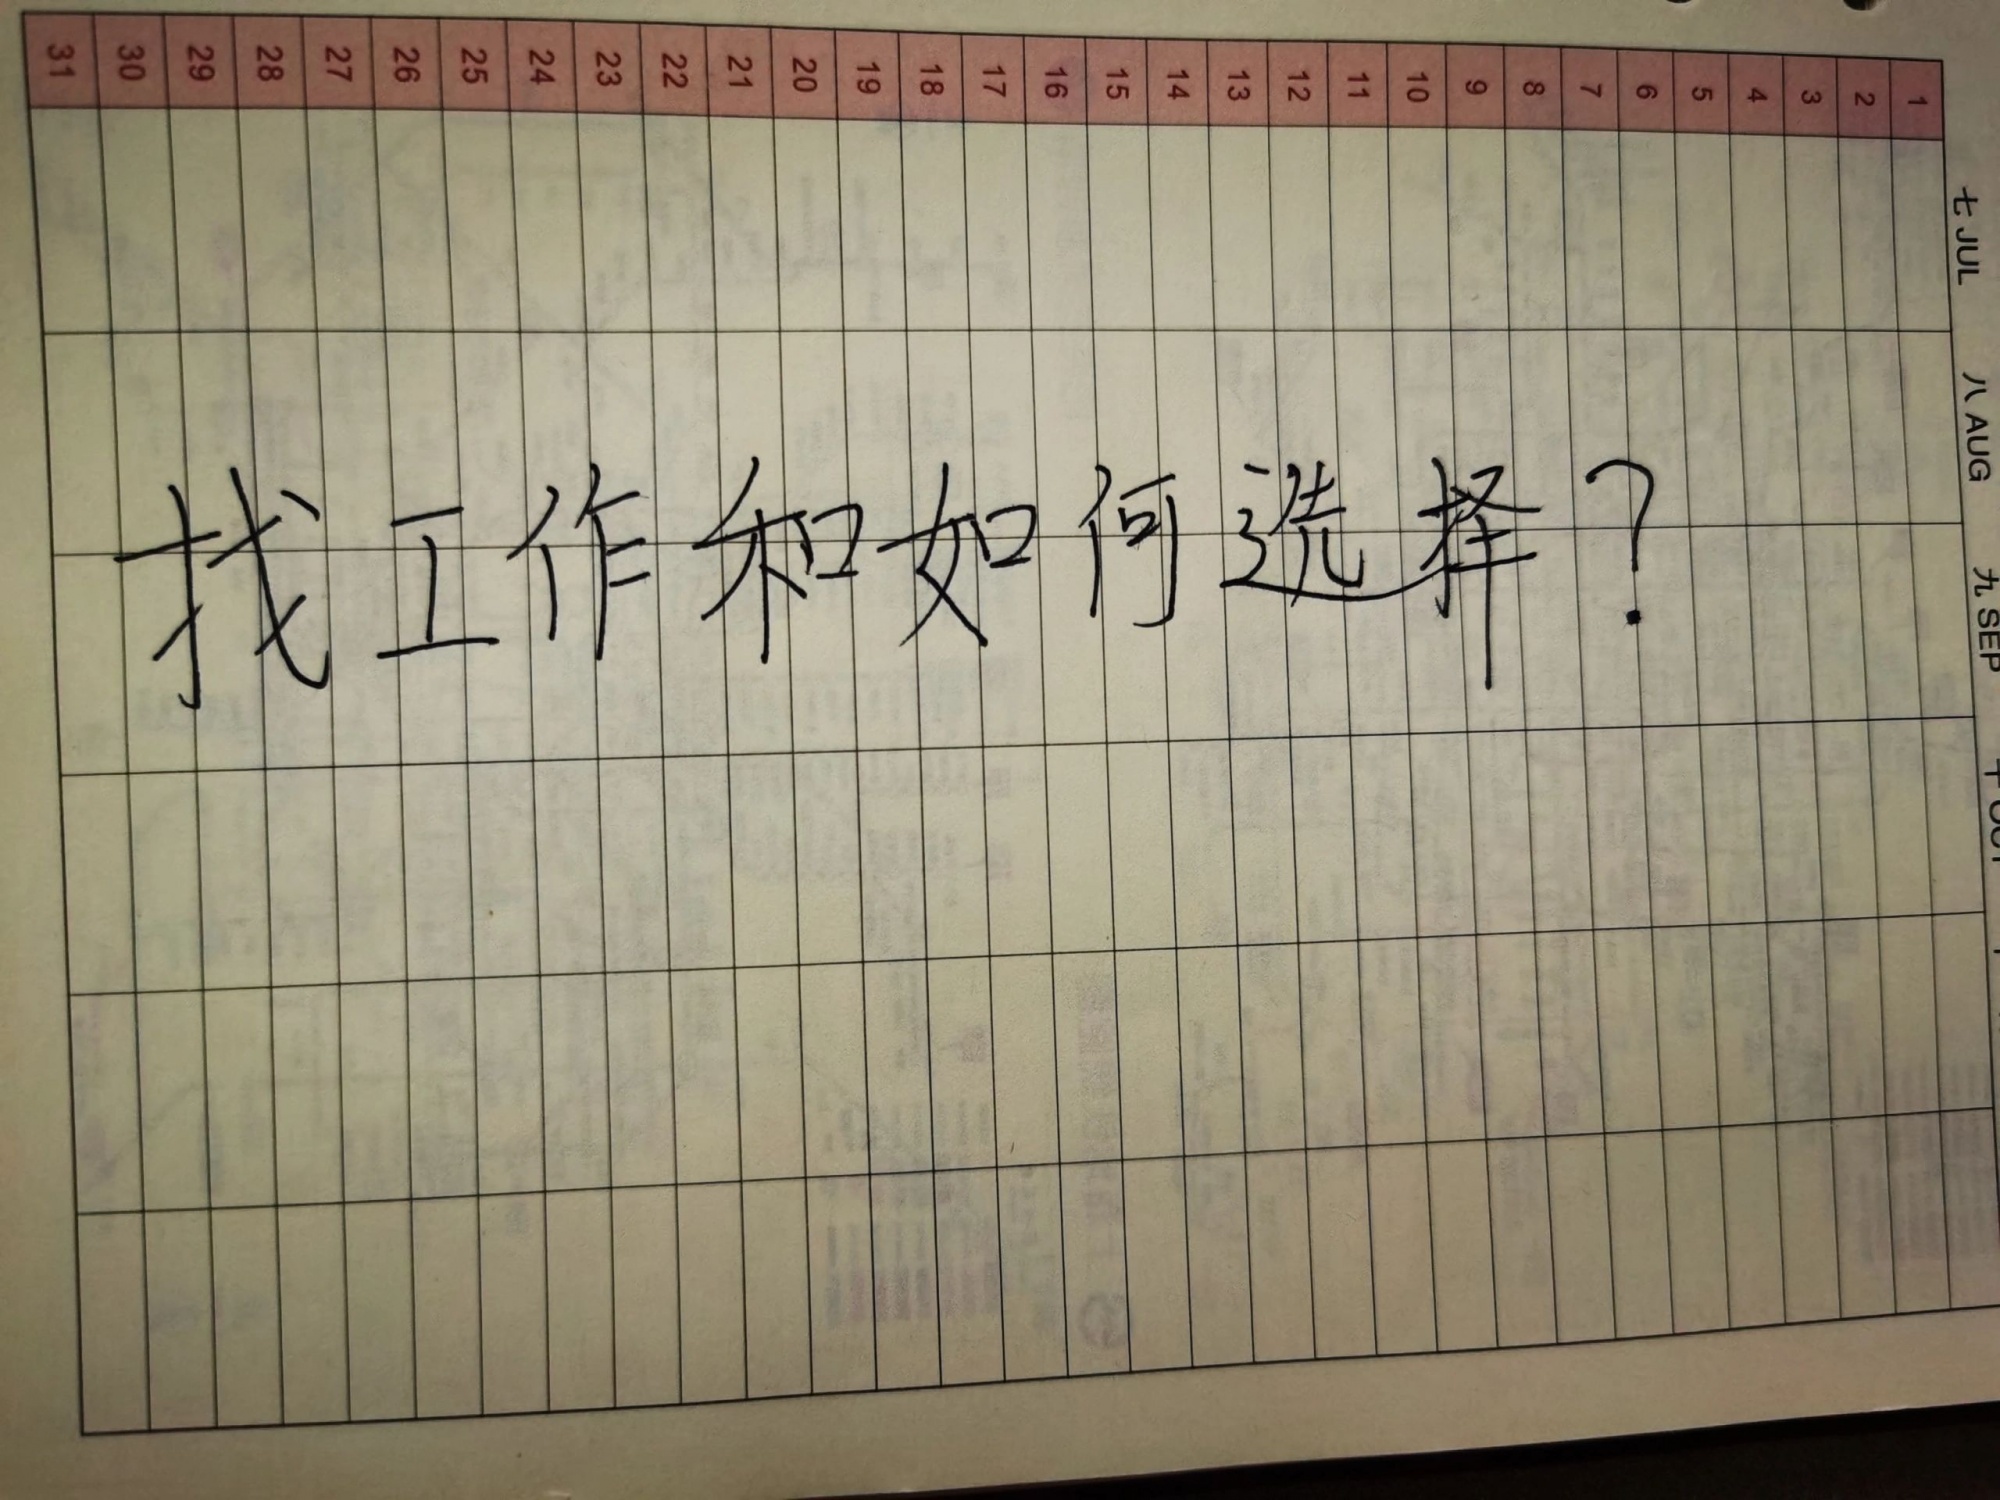 找工作和如何选择？
31 30 29 28 27 26 25 24 23 22 21 20 19 18 17 16 15 14 13 12 11 10 9 8 7 6 5 4 3 2 1
七 JUL
八 AUG
九 SEP
十 OCT